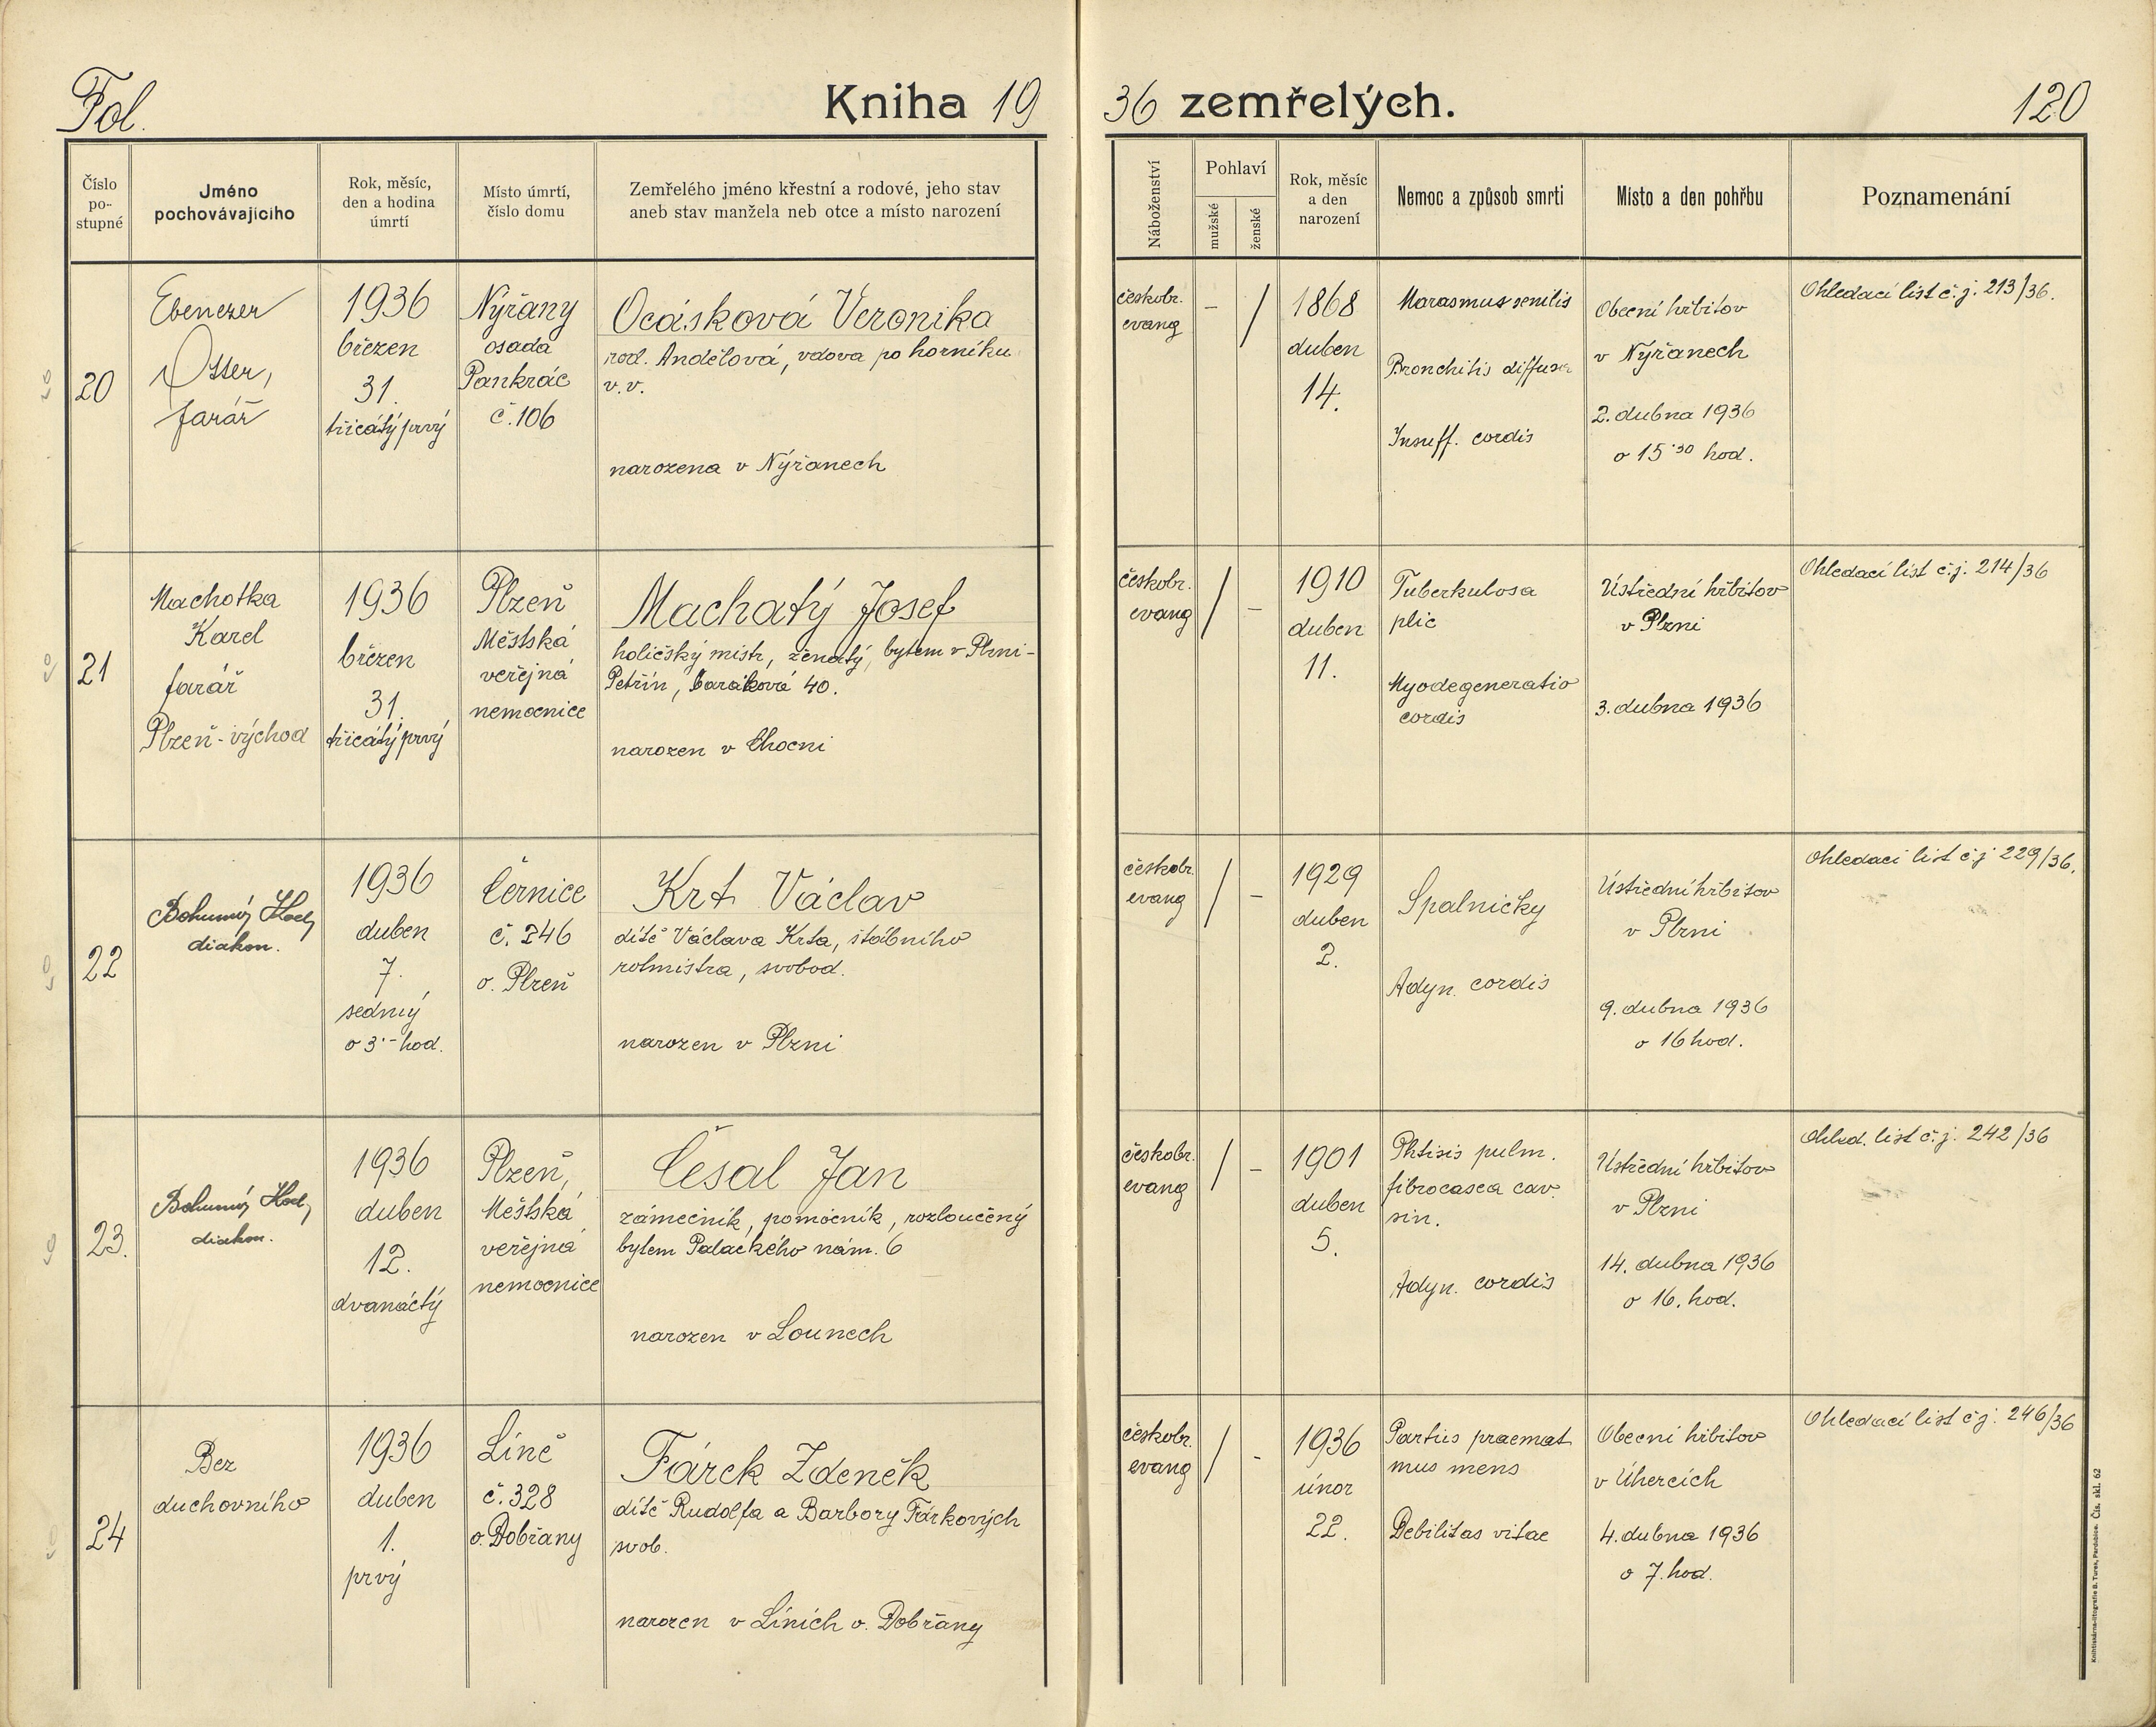 Fol.
Kniha 1936 zemřelých.
120
Číslo po-stupné
Jméno pochovávajícího
Rok, měsíc, den a hodina úmrtí
Místo úmrtí, číslo domu
Zemřelého jméno křestní a rodové, jeho stav
aneb stav manžela neb otce a místo narození
Náboženství
Pohlaví
mužské
ženské
Rok, měsíc a den narození
Nemoc a způsob smrti
Místo a den pohřbu
Poznamenání
20
Ebenezer
Otter,
farář
1936
březen
31.
třicátý prvý
Nýřany
osada
Pankrác
č. 106
Ocásková Veronika
rod. Andělová, vdova po horníku
v. v.
narozena v Nýřanech
českobr.
evang
–
/
1868
duben
14.
Marasmus senilis
Bronchitis diffusa
Insuff. cordis
Obecní hřbitov
v Nýřanech
2. dubna 1936
o 15·30 hod.
Ohledací list č. j. 213/36.
21
Machotka
Karel
farář
Plzeň-východ
1936
březen
31.
třicátý prvý
Plzeň
Městská
veřejná
nemocnice
Machatý Josef
holičský mistr, ženatý, bytem v Plzni-
Petřín, Barákova 40.
narozen v Chocni
českobr.
evang
/
–
1910
duben
11.
Tuberkulosa
plic
Myodegeneratio
cordis
Ústřední hřbitov
v Plzni
3. dubna 1936
Ohledací list č. j. 214/36
22
Bohumír
diakon.
1936
duben
7.
sedmý
o 3·– hod.
Černice
č. 246
o. Plzeň
Krt Václav
dítě Václava Krta, štábního
rotmistra, svobod.
narozen v Plzni
českobr.
evang
/
–
1929
duben
2.
Spalničky
Adyn. cordis
Ústřední hřbitov
v Plzni
9. dubna 1936
o 16 hod.
Ohledací list č. j. 229/36.
23.
Bohumír
diakon.
1936
duben
12.
dvanáctý
Plzeň,
Městská
veřejná
nemocnice
Česal Jan
zámečník, pomocník, rozloučený
bytem Palackého nám. 6
narozen v Lounech
českobr.
evang
/
–
1901
duben
5.
Phtisis pulm.
fibrocasea cav.
sin.
Adyn. cordis
Ústřední hřbitov
v Plzni
14. dubna 1936
o 16. hod.
Ohled. list č. j. 242/36
24
Bez
duchovního
1936
duben
1.
prvý
Líně
č. 328
o. Dobřany
Fárek Zdeněk
dítě Rudolfa a Barbory Fárkových
svob.
narozen v Líních o. Dobřany
českobr.
evang
/
-
1936
únor
22.
Partus praemat
mus mens
Debilitas vitae
Obecní hřbitov
v Úhercích
4. dubna 1936
o 7. hod.
Ohledací list č. j. 246/36
Knihtiskárna-litografie B. Turek, Pardubice. Čís. skl. 62